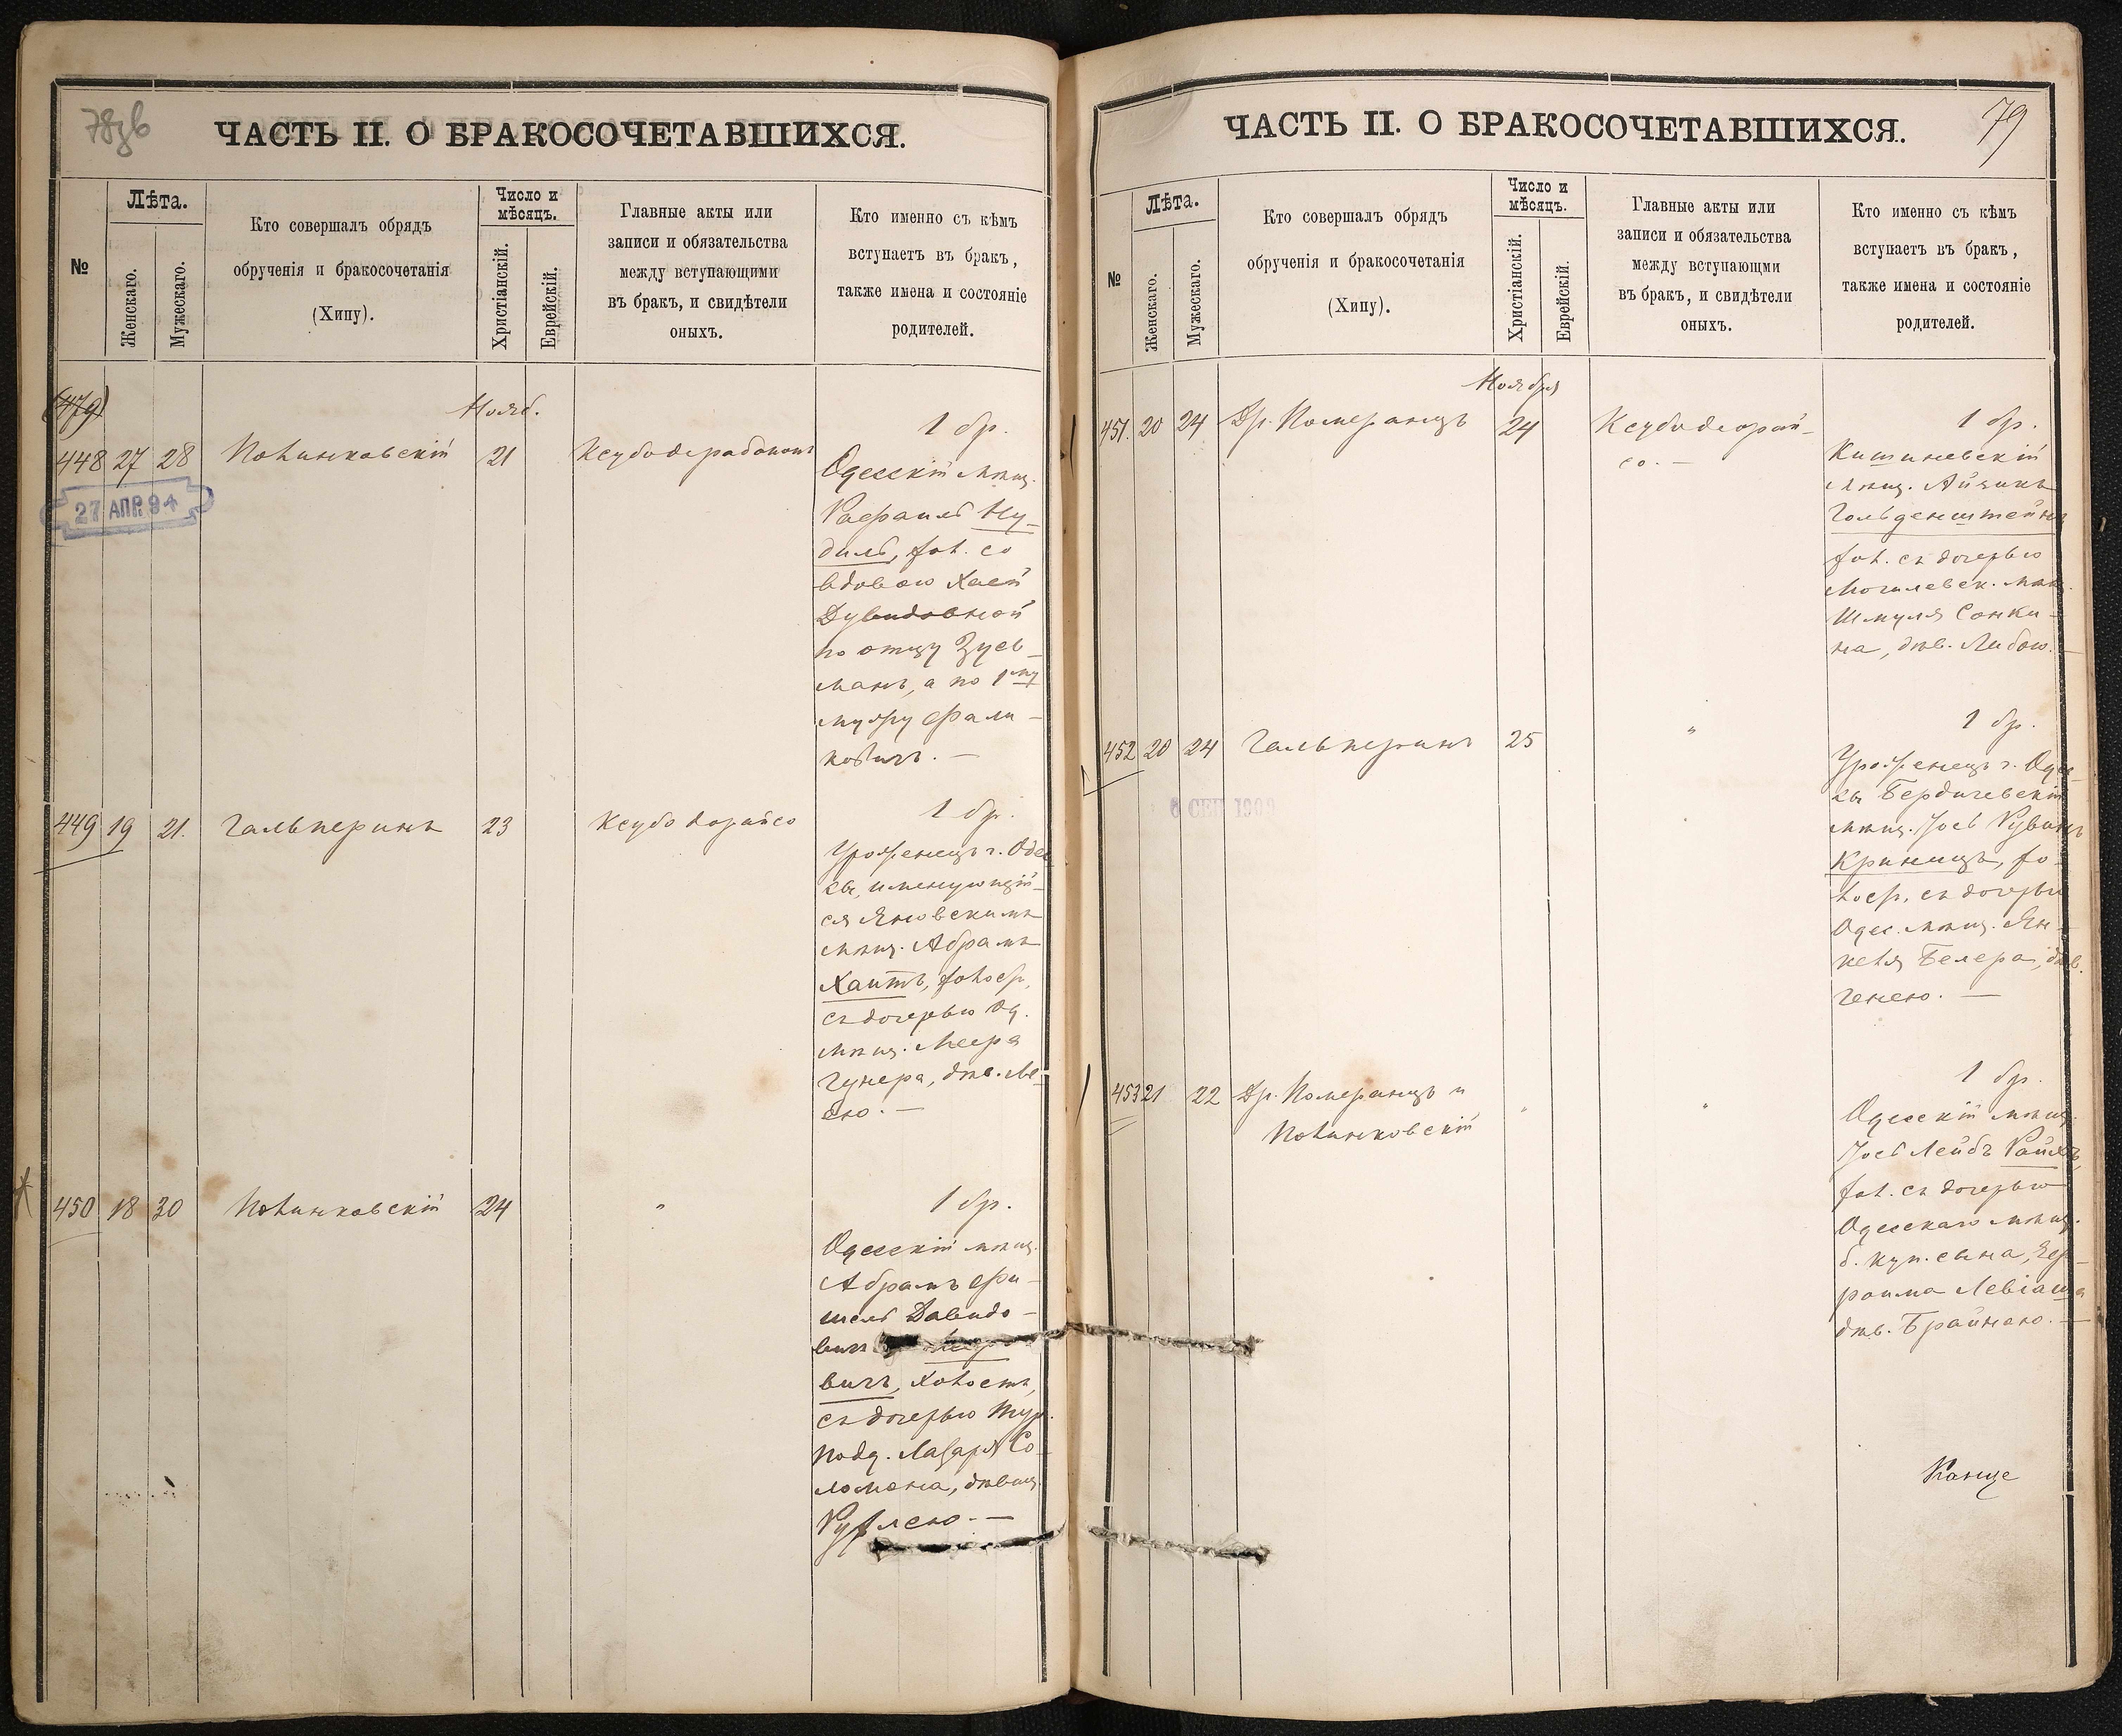 78зв
ЧАСТЬ II. О БРАКОСОЧЕТАВШИХСЯ.
№
Лѣта.
Женскаго.
Мужескаго.
Кто совершалъ обрядъ
обрученія и бракосочетанія
(Хипу).
Число и
мѣсяцъ.
Христіанскій.
Еврейскій.
Главные акты или
записи и обязательства
между вступающими
въ бракъ, и свидѣтели
оныхъ.
Кто именно съ кѣмъ
вступаетъ въ бракъ,
также имена и состояніе
родителей.
(479)
Нояб.
448 27 28 Полинковскій 21 Ксубодерабононъ
27 АПР. 94
1 бр.
Одесскій мѣщ.
Рафаилъ Ну-
диль, хол. со
вдовою Хаей
Дувидовной
по отцу Зусь-
манъ, а по 1му
мужу Фали-
ковичъ. —
449 19 21. Гальперинъ 23 Ксубо дорайсо
1 бр.
Уроженецъ г. Одес
сы, именующій-
ся Яновскимъ
мѣщ. Абрамъ
Хаитъ, холост,
съ дочерью Од.
мѣщ. Меера
Гунера, дѣв. Ле-
ею. —
450 18 30 Полинковскій 24 "
1 бр.
Одесскій мѣщ.
Абрамъ Фи-
шель Давидо-
вичъ
вичъ, холостъ,
съ дочерью Тур.
подд. Лазаря Со-
ломона, дѣвиц.
Рухлею. —
79
ЧАСТЬ II. О БРАКОСОЧЕТАВШИХСЯ.
№
Лѣта.
Женскаго.
Мужескаго.
Кто совершалъ обрядъ
обрученія и бракосочетанія
(Хипу).
Число и
мѣсяцъ.
Христіанскій.
Еврейскій.
Главные акты или
записи и обязательства
между вступающми
въ бракъ, и свидѣтели
оныхъ.
Кто именно съ кѣмъ
вступаетъ въ бракъ,
также имена и состояніе
родителей.
Ноября
451. 20 24 Др. Померанцъ 24 Ксубодеорай-
со. —
1 бр.
Кишиневскій
мѣщ. Айзикъ
Гольденштейнъ
хол. съ дочерью
Могилевск. мѣщ.
Шмуля Сонки-
на, дѣв. Любою. —
452 20 24 Гальперинъ 25 "
8 СЕН 1909
1 бр.
Уроженецъ г. Одес-
сы Бердичевскій
мѣщ. Іось Рувинъ
Криницъ, хо-
лост, съ дочерью
Одес. мѣщ. Ян-
келя Белера, дѣв.
Генею. —
453 21 22 Др. Померанцъ и " "
Полинковскій
1 бр.
Одесскій мѣщ.
Іось Лейбъ Райхъ,
хол. съ дочерью
Одесскаго мѣщ.
б. куп. сына, Эф-
роима Левіаша
дѣв. Брайною. —